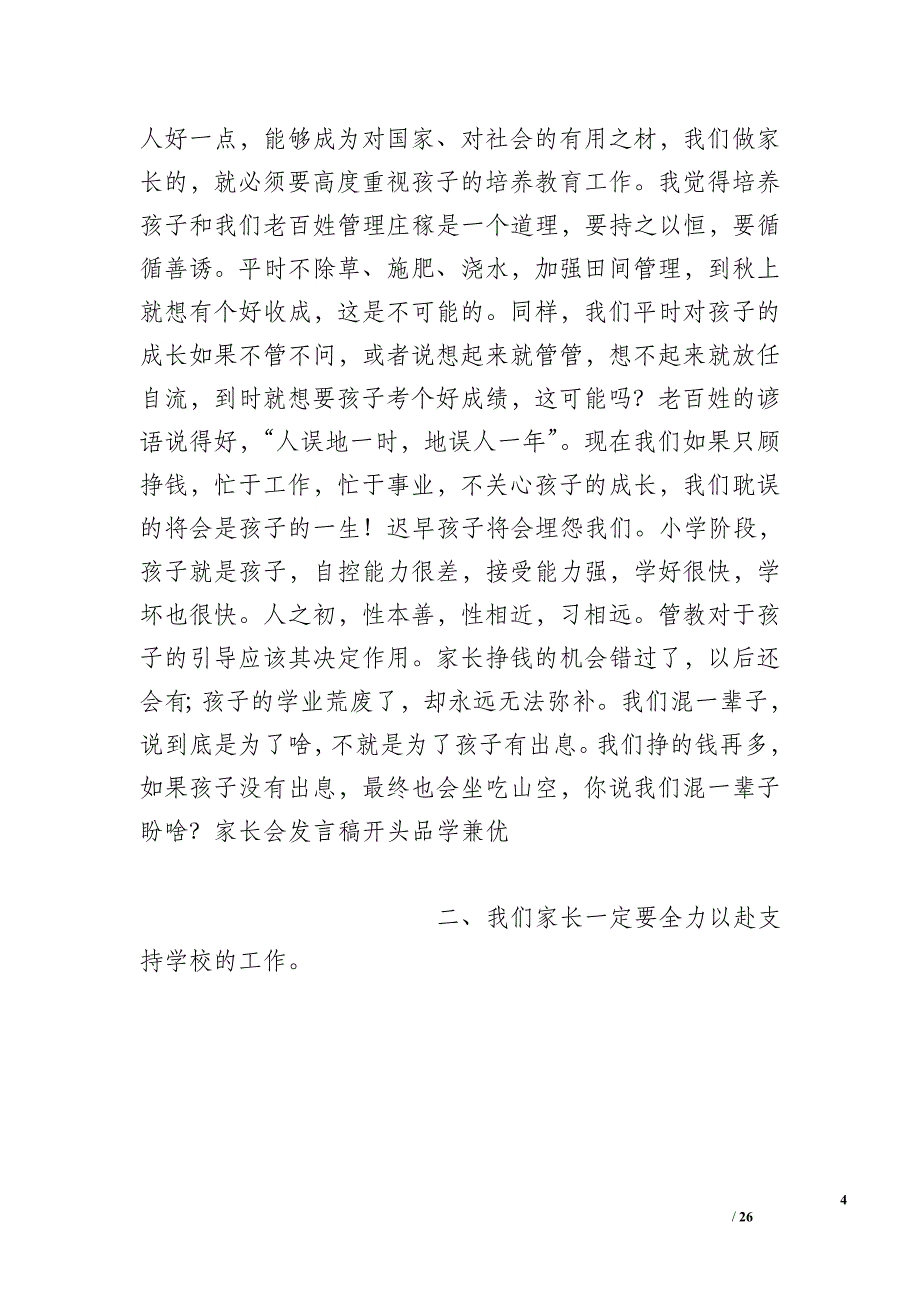 人好一点，能够成为对国家、对社会的有用之材，我们做家
长的，就必须要高度重视孩子的培养教育工作。我觉得培养
孩子和我们老百姓管理庄稼是一个道理，要持之以恒，要循
循善诱。平时不除草、施肥、浇水，加强田间管理，到秋上
就想有个好收成，这是不可能的。同样，我们平时对孩子的
成长如果不管不问，或者说想起来就管管，想不起来就放任
自流，到时就想要孩子考个好成绩，这可能吗？老百姓的谚
语说得好，“人误地一时，地误人一年”。现在我们如果只顾
挣钱，忙于工作，忙于事业，不关心孩子的成长，我们耽误
的将会是孩子的一生！迟早孩子将会埋怨我们。小学阶段，
孩子就是孩子，自控能力很差，接受能力强，学好很快，学
坏也很快。人之初，性本善，性相近，习相远。管教对于孩
子的引导应该其决定作用。家长挣钱的机会错过了，以后还
会有；孩子的学业荒废了，却永远无法弥补。我们混一辈子，
说到底是为了啥，不就是为了孩子有出息。我们挣的钱再多，
如果孩子没有出息，最终也会坐吃山空，你说我们混一辈子
盼啥？家长会发言稿开头品学兼优
二、我们家长一定要全力以赴支
持学校的工作。
4
/ 26